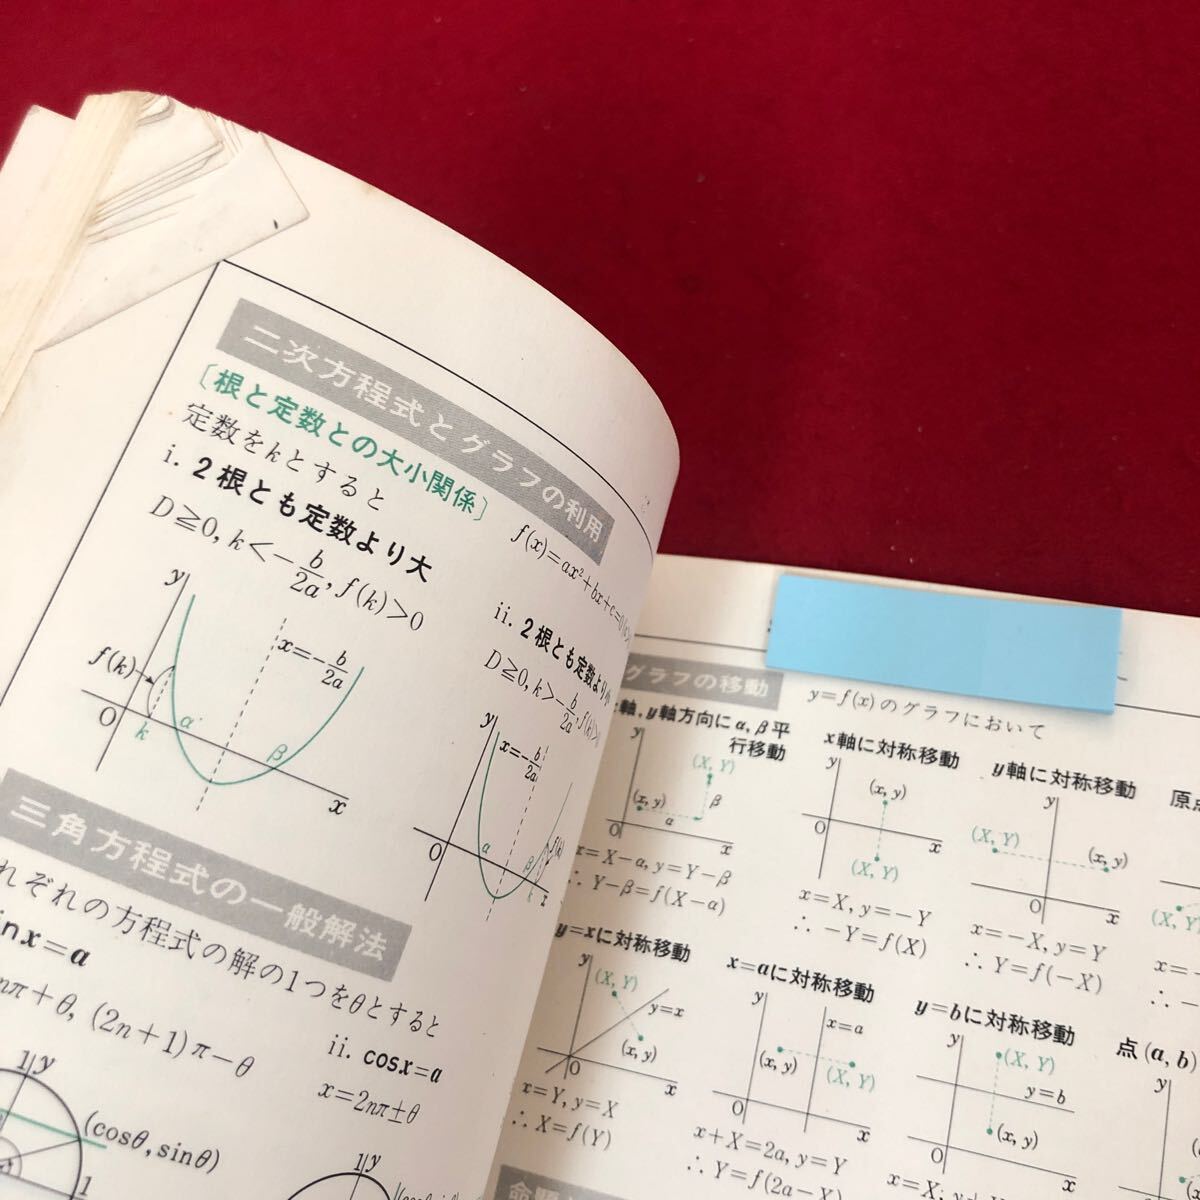 二次方程式とグラフの利用
〔根と定数との大小関係〕
f(x)=ax²+bx+c=0
定数をkとすると
i. 2根とも定数より大
D≧0, k<-b/2a, f(k)>0
y
x=-b/2a
f(k)
O
k
α
β
x
ii. 2根とも定数より小
D≧0, k>-b/2a, f(k)>0
y
x=-b/2a
f(k)
O
α
β
k
x
三角方程式の一般解法
れぞれの方程式の解の1つをθとすると
inx=a
nπ+θ, (2n+1)π-θ
1
y
(cosθ, sinθ)
1
ii. cosx=a
x=2nπ±θ
1
y
グラフの移動
y=f(x)のグラフにおいて
軸, y軸方向にα, β平
行移動
y
(X, Y)
(x, y)
β
α
O
x
x=X-α, y=Y-β
∴ Y-β=f(X-α)
x軸に対称移動
y
(x, y)
O
x
(X, Y)
x=X, y=-Y
∴ -Y=f(X)
y軸に対称移動
y
(X, Y)
(x, y)
O
x
x=-X, y=Y
∴ Y=f(-X)
原点
(X, Y)
x=-
∴ -
y=xに対称移動
y
(X, Y)
y=x
(x, y)
O
x
x=Y, y=X
∴ X=f(Y)
x=aに対称移動
y
x=a
(x, y)
(X, Y)
O
x
x+X=2a, y=Y
∴ Y=f(2a-X)
y=bに対称移動
y
(X, Y)
y=b
(x, y)
O
x
x=X, y+
点(a, b)
y
命題